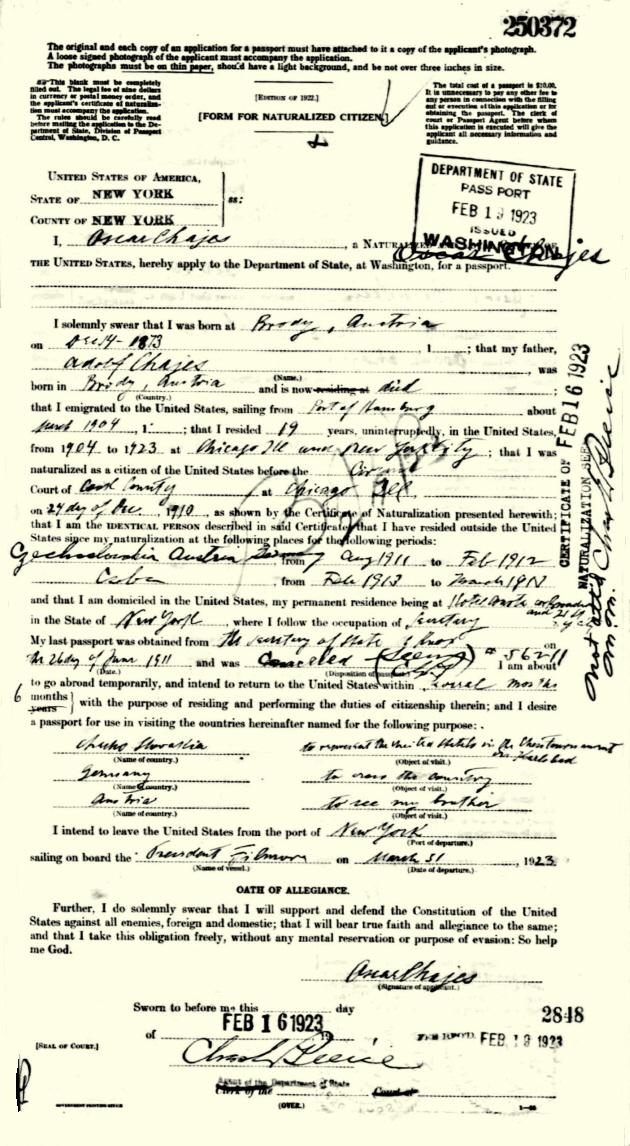 250372
The original and each copy of an application for a passport must have attached to it a copy of the applicant's photograph.
A loose signed photograph of the applicant must accompany the application.
The photographs must be on thin paper, should have a light background, and be not over three inches in size.
This blank must be completely
filled out. The legal fee of nine dollars
in currency or postal money order, and
the applicant's certificate of naturaliza-
tion must accompany the application.
The rules should be carefully read
before mailing the application to the De-
partment of State, Division of Passport
Control, Washington, D. C.
[EDITION OF 1922.]
[FORM FOR NATURALIZED CITIZEN.]
The total cost of a passport is $10.00.
It is unnecessary to pay any other fee to
any person in connection with the filling
out or execution of this application or for
obtaining the passport. The clerk of
court or Passport Agent before whom
this application is executed will give the
applicant all necessary information and
guidance.
UNITED STATES OF AMERICA,
STATE OF NEW YORK
COUNTY OF NEW YORK
ss:
DEPARTMENT OF STATE
PASSPORT
FEB 19 1923
ISSUED
WASHINGTON
I, Oscar Chajes, a NATURALIZED
Oscar Chajes
THE UNITED STATES, hereby apply to the Department of State, at Washington, for a passport.
I solemnly swear that I was born at Brody, Austria
on Dec 14 - 1873, 1 ; that my father,
Adolf Chajes, was
(Name.)
born in Brody, Austria and is now residing at died ;
(Country.)
that I emigrated to the United States, sailing from Port of Hamburg about
March 1904, 1 ; that I resided 19 years, uninterruptedly, in the United States,
from 1904 to 1923 at Chicago Ill and New York City ; that I was
naturalized as a citizen of the United States before the Circuit
Court of Cook County at Chicago Ill
on 24 day of Dec. 1910, as shown by the Certificate of Naturalization presented herewith;
that I am the IDENTICAL PERSON described in said Certificate; that I have resided outside the United
States since my naturalization at the following places for the following periods:
Czechoslovakia Austria Germany from Aug 1911 to Feb 1912
Cuba, from Feb 1913 to March 1913
and that I am domiciled in the United States, my permanent residence being at Hotel
in the State of New York, where I follow the occupation of Secretary
My last passport was obtained from the Secretary of State on
the 26 day of June 1911 and was Canceled # 56211 I am about
(Date.) (Disposition of passport.)
to go abroad temporarily, and intend to return to the United States within several months
6 months
years
with the purpose of residing and performing the duties of citizenship therein; and I desire
a passport for use in visiting the countries hereinafter named for the following purpose:
Checko Slovakia to represent the United States in the Chess tournament in Karlsbad
(Name of country.) (Object of visit.)
Germany to cross the country
(Name of country.) (Object of visit.)
Austria to see my brother
(Name of country.) (Object of visit.)
I intend to leave the United States from the port of New York
(Port of departure.)
sailing on board the President Filmore on March 31, 1923
(Name of vessel.) (Date of departure.)
OATH OF ALLEGIANCE.
Further, I do solemnly swear that I will support and defend the Constitution of the
United States against all enemies, foreign and domestic; that I will bear true faith and allegiance to the same;
and that I take this obligation freely, without any mental reservation or purpose of evasion: So help
me God.
Oscar Chajes
(Signature of applicant.)
Sworn to before me this day
of FEB 16 1923
2848
FEE REC'D. FEB 19 1923
[SEAL OF COURT.]
Agent of the Department of State
Clerk of the Court at
(OVER.)
GOVERNMENT PRINTING OFFICE
CERTIFICATE OF FEB 16 1923
NATURALIZATION SEEN